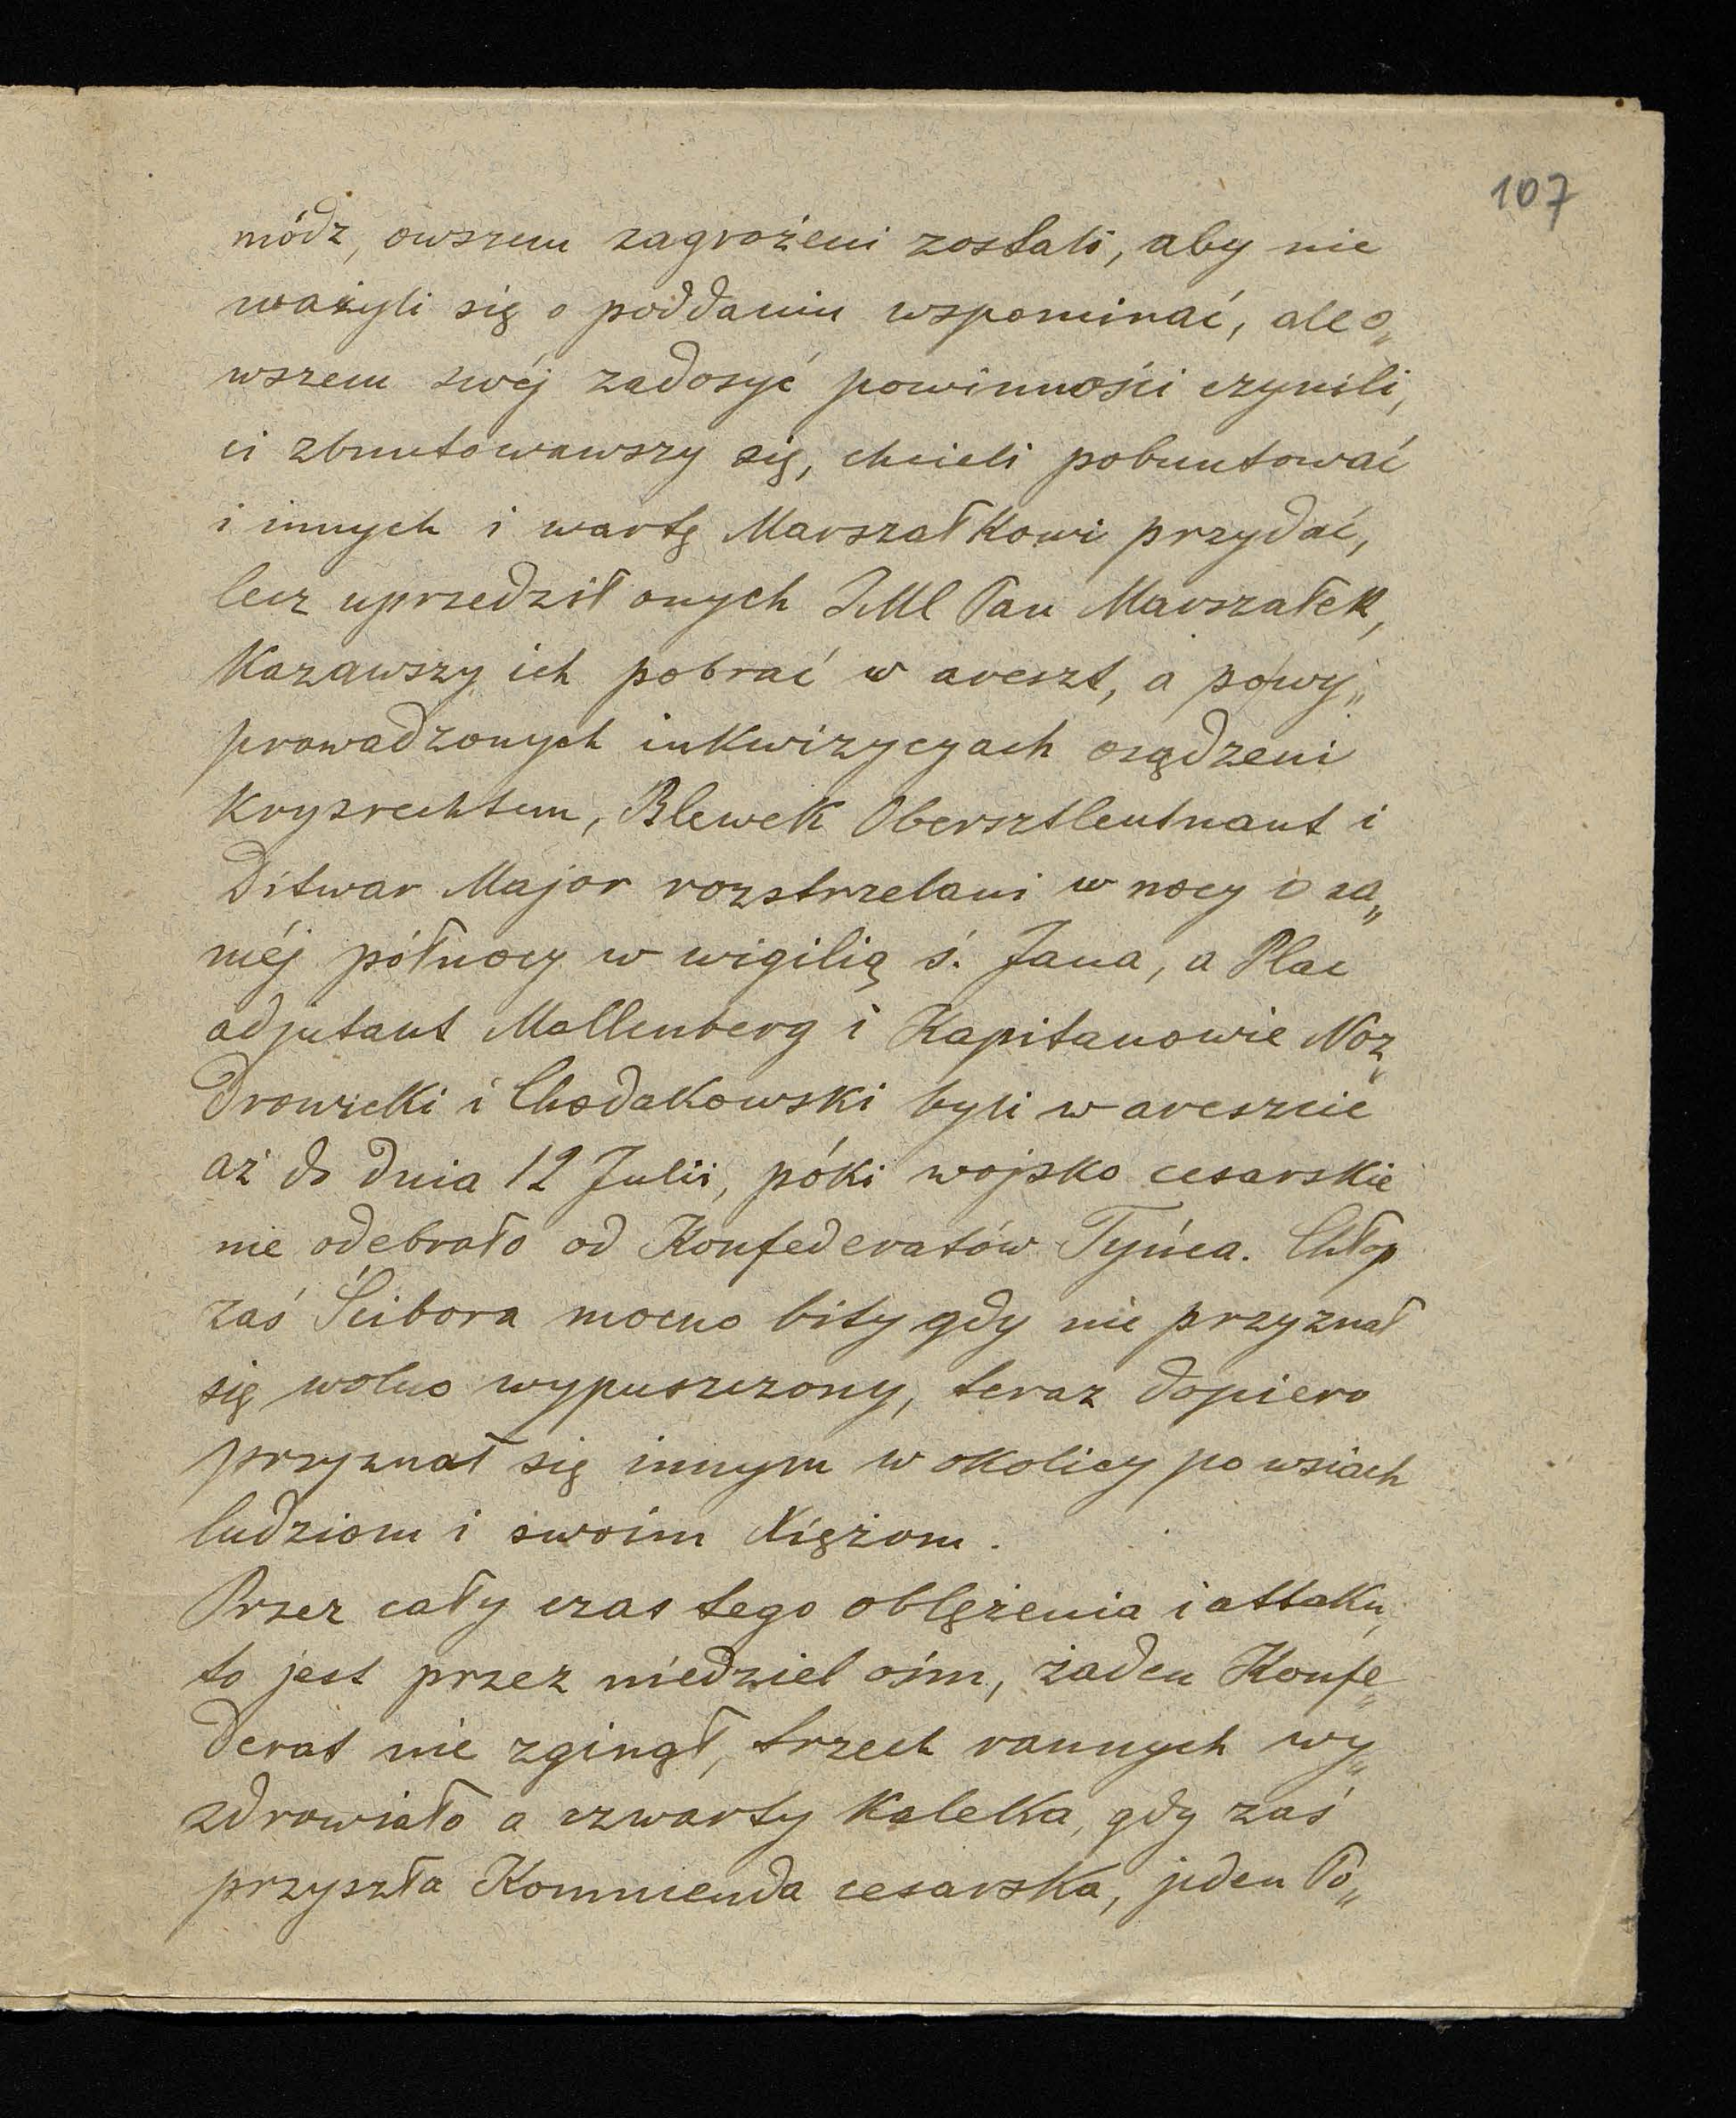 107
módz, owszem zagrożeni zostali, aby nie
ważyli się o poddaniu wspominać, ale o„
wszem swéj zadosyć powinności czynili,
ci zbuntowawszy się, chcieli pobuntować
i innych i wartę Marszałkowi przydać,
lecz uprzedził onych JMl Pan Marszałek,
Kazawszy ich pobrać w areszt, a po wy„
prowadzonych inkwizycyach osądzeni
Kryzrechtem, Blewek Obersztleutnant i
Ditwar Major rozstrzelani w nocy o sa„
méj północy w wigilią ś. Jana, a Plac
adjutant Mallenberg i Kapitanowie Noz„
drowicki i Chodakowski byli w areszcie
aż do dnia 12 Julii, póki wojsko cesarskie
nie odebrało od Konfederatów Tyńca. Chłop
zaś Ścibora mocno bity gdy nie przyznał
się wolno wypuszczony, teraz dopiero
przyznał się innym w okolicy po wsiach
ludziom i swoim Xiężom.
Przez cały czas tego oblężenia i attaku,
to jest przez niedziel ośm, żaden Konfe„
derat nie zginął, trzech rannych wy„
zdrowiało a czwarty Kaleka, gdy zaś
przyszła Kommenda cesarska, jeden Po„